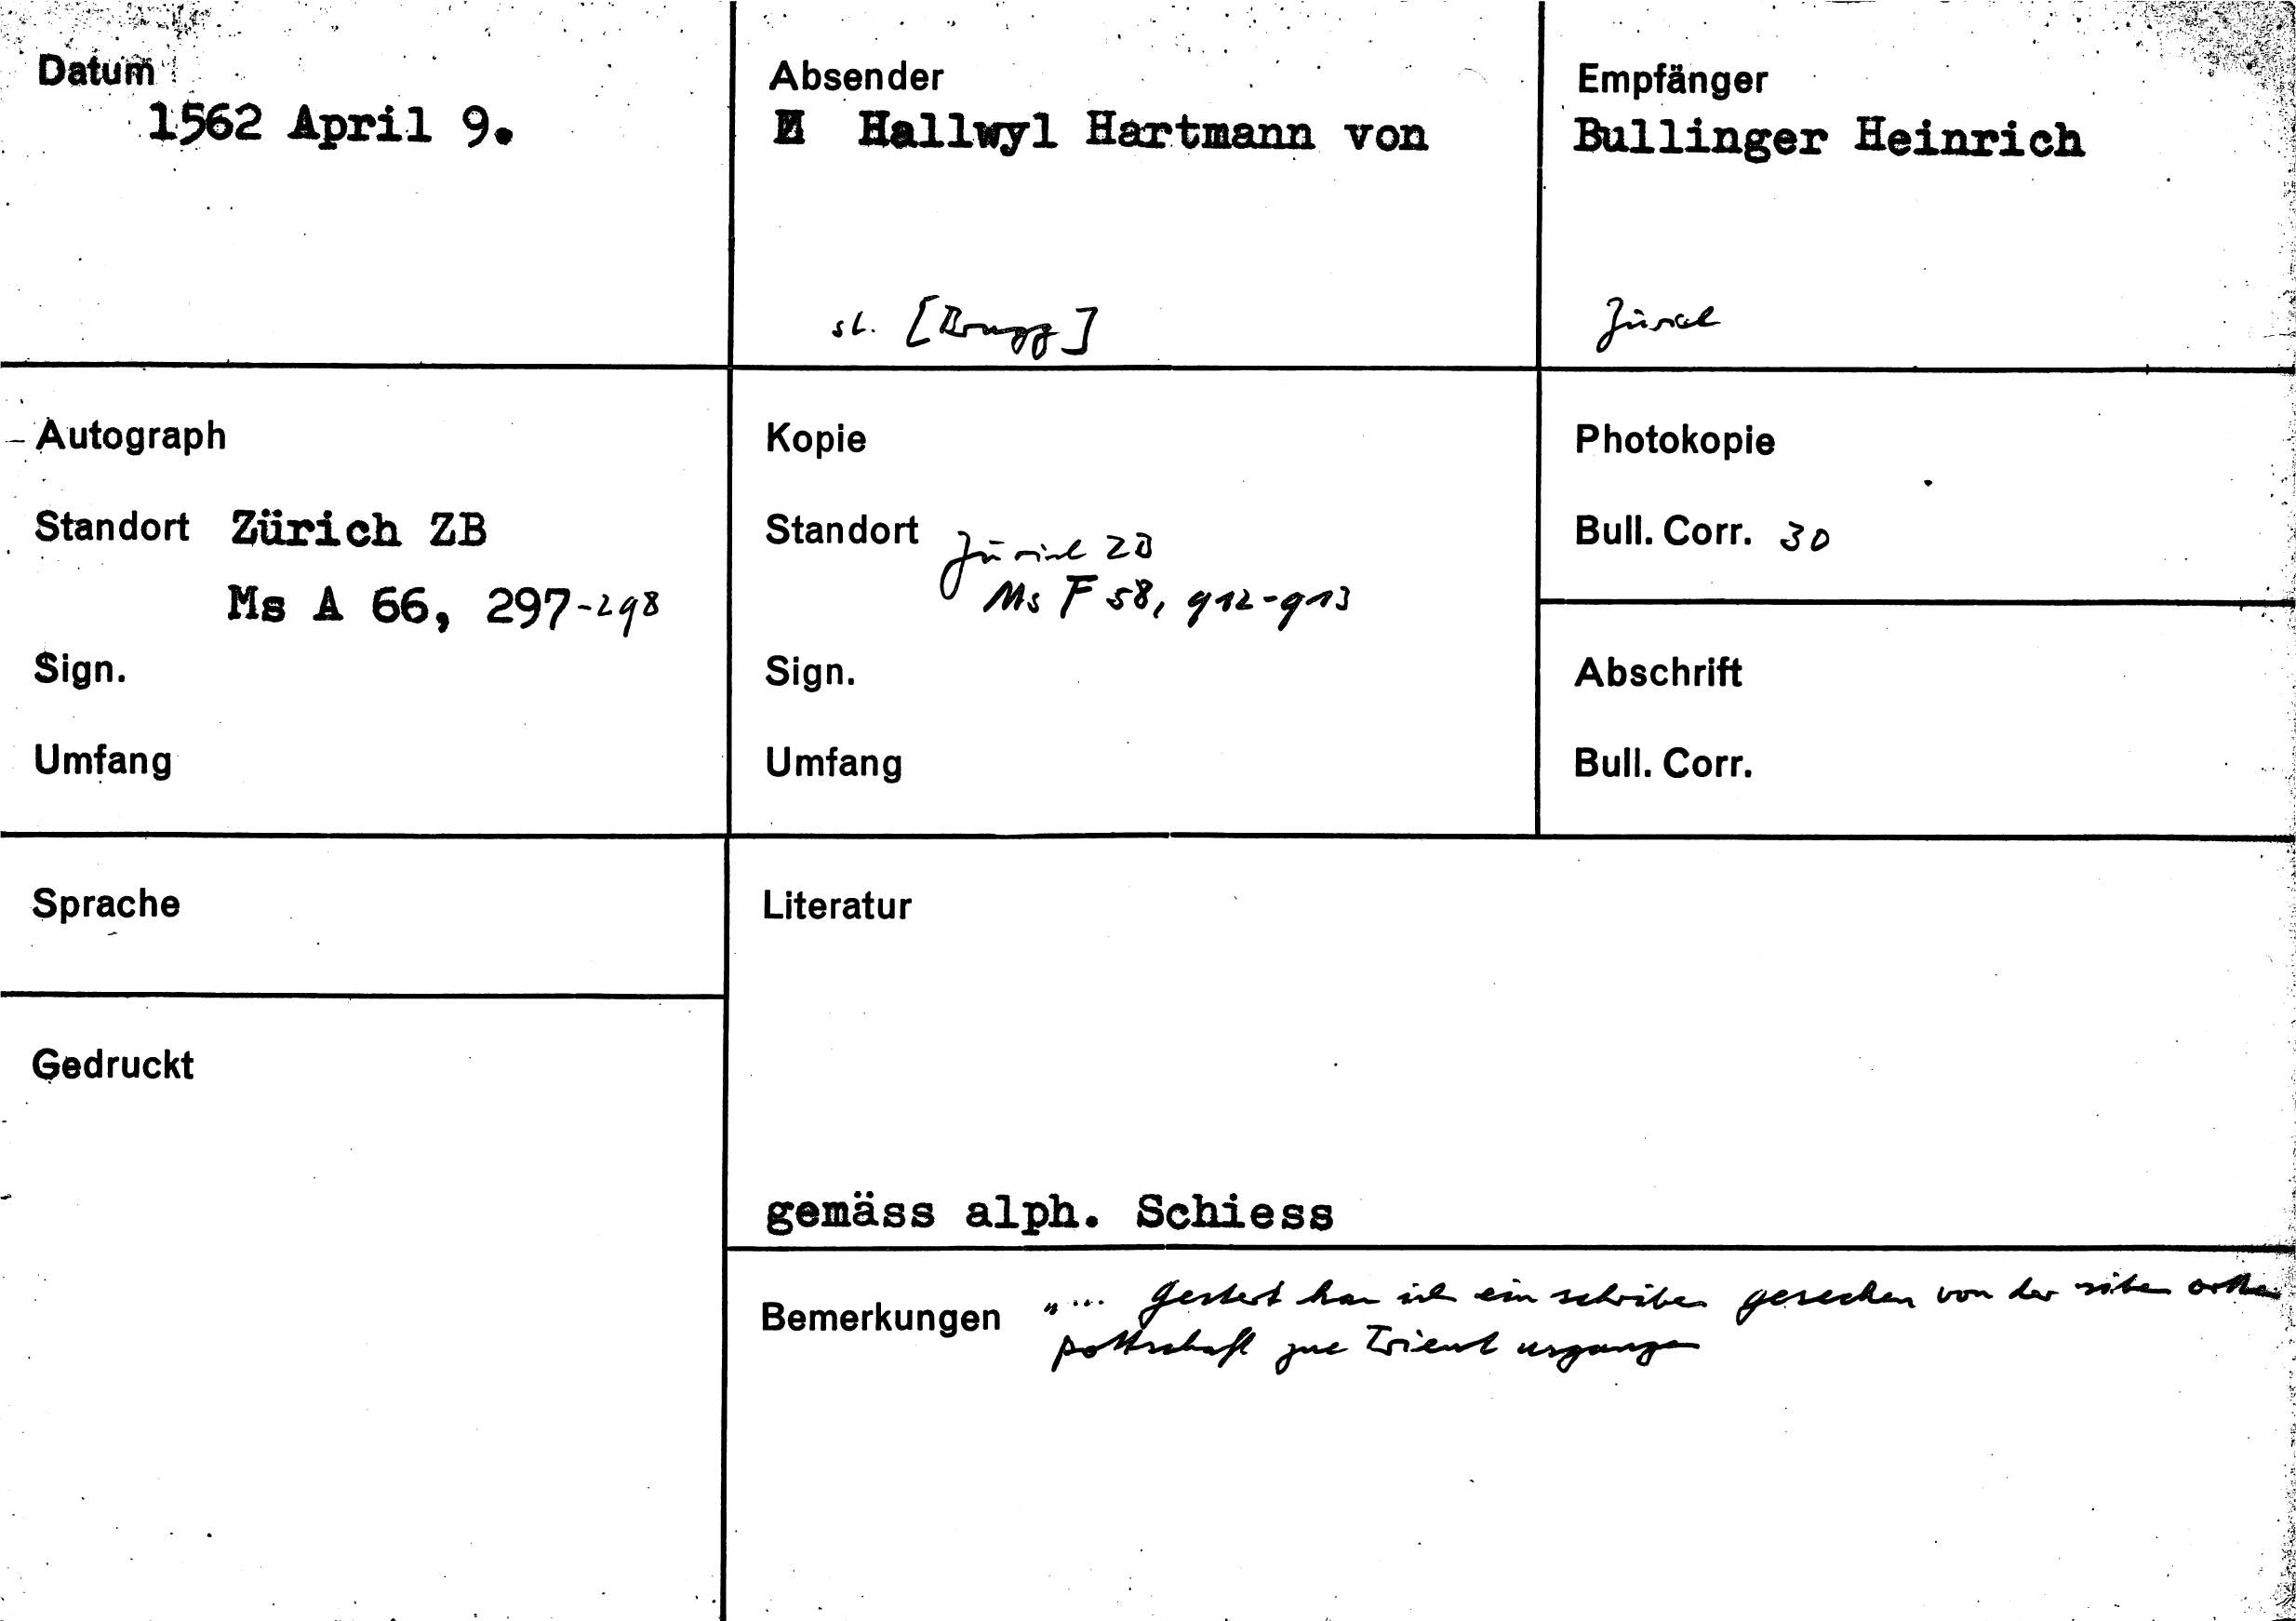 Datum
1562 April 9.
Absender
Hallwyl Hartmann von
st. [Brugg]
Empfänger
Bullinger Heinrich
Zürich
Autograph
Standort Zürich ZB
Ms A 66, 297-298
Sign.
Umfang
Kopie
Standort Zürich ZB
Ms F 58, 912-913
Sign.
Umfang
Photokopie
Bull. Corr. 30
Abschrift
Bull. Corr.
Sprache
Gedruckt
Literatur
gemäss alph. Schiess
Bemerkungen "... Gestert han ich ein schriben gesechen von der siben orthen
pottschaft zue Trient usgangen